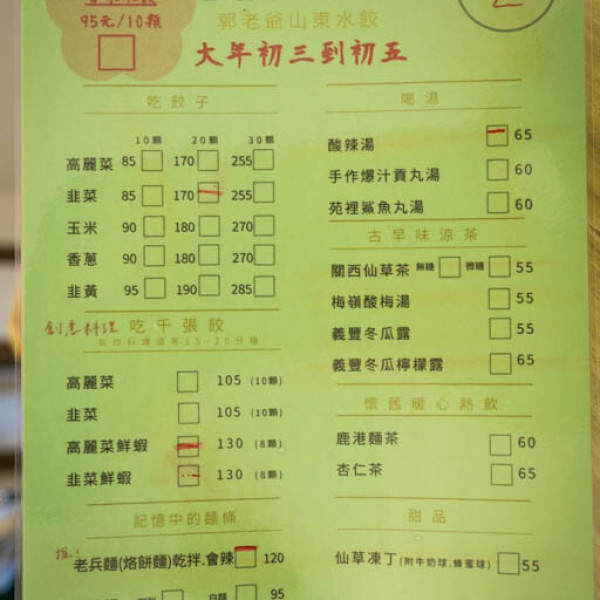 95元/10顆
郭老爺山東水餃
大年初三到初五
吃餃子
10顆 20顆 30顆
高麗菜 85 170 255
韭菜 85 170 255
玉米 90 180 270
香蔥 90 180 270
韭黃 95 190 285
創意料理 吃千張餃
高麗菜 105 (10顆)
韭菜 105 (10顆)
高麗菜鮮蝦 130 (8顆)
韭菜鮮蝦 130 (8顆)
記憶中的麵條
老兵麵(烙餅麵)乾拌.會辣 120
白麵 95
喝湯
酸辣湯 65
手作爆汁貢丸湯 60
苑裡鯊魚丸湯 60
古早味涼茶
關西仙草茶 無糖 微糖 55
梅嶺酸梅湯 55
義豐冬瓜露 55
義豐冬瓜檸檬露 65
懷舊暖心熱飲
鹿港麵茶 60
杏仁茶 65
甜品
仙草凍丁(附牛奶球.蜂蜜球) 55